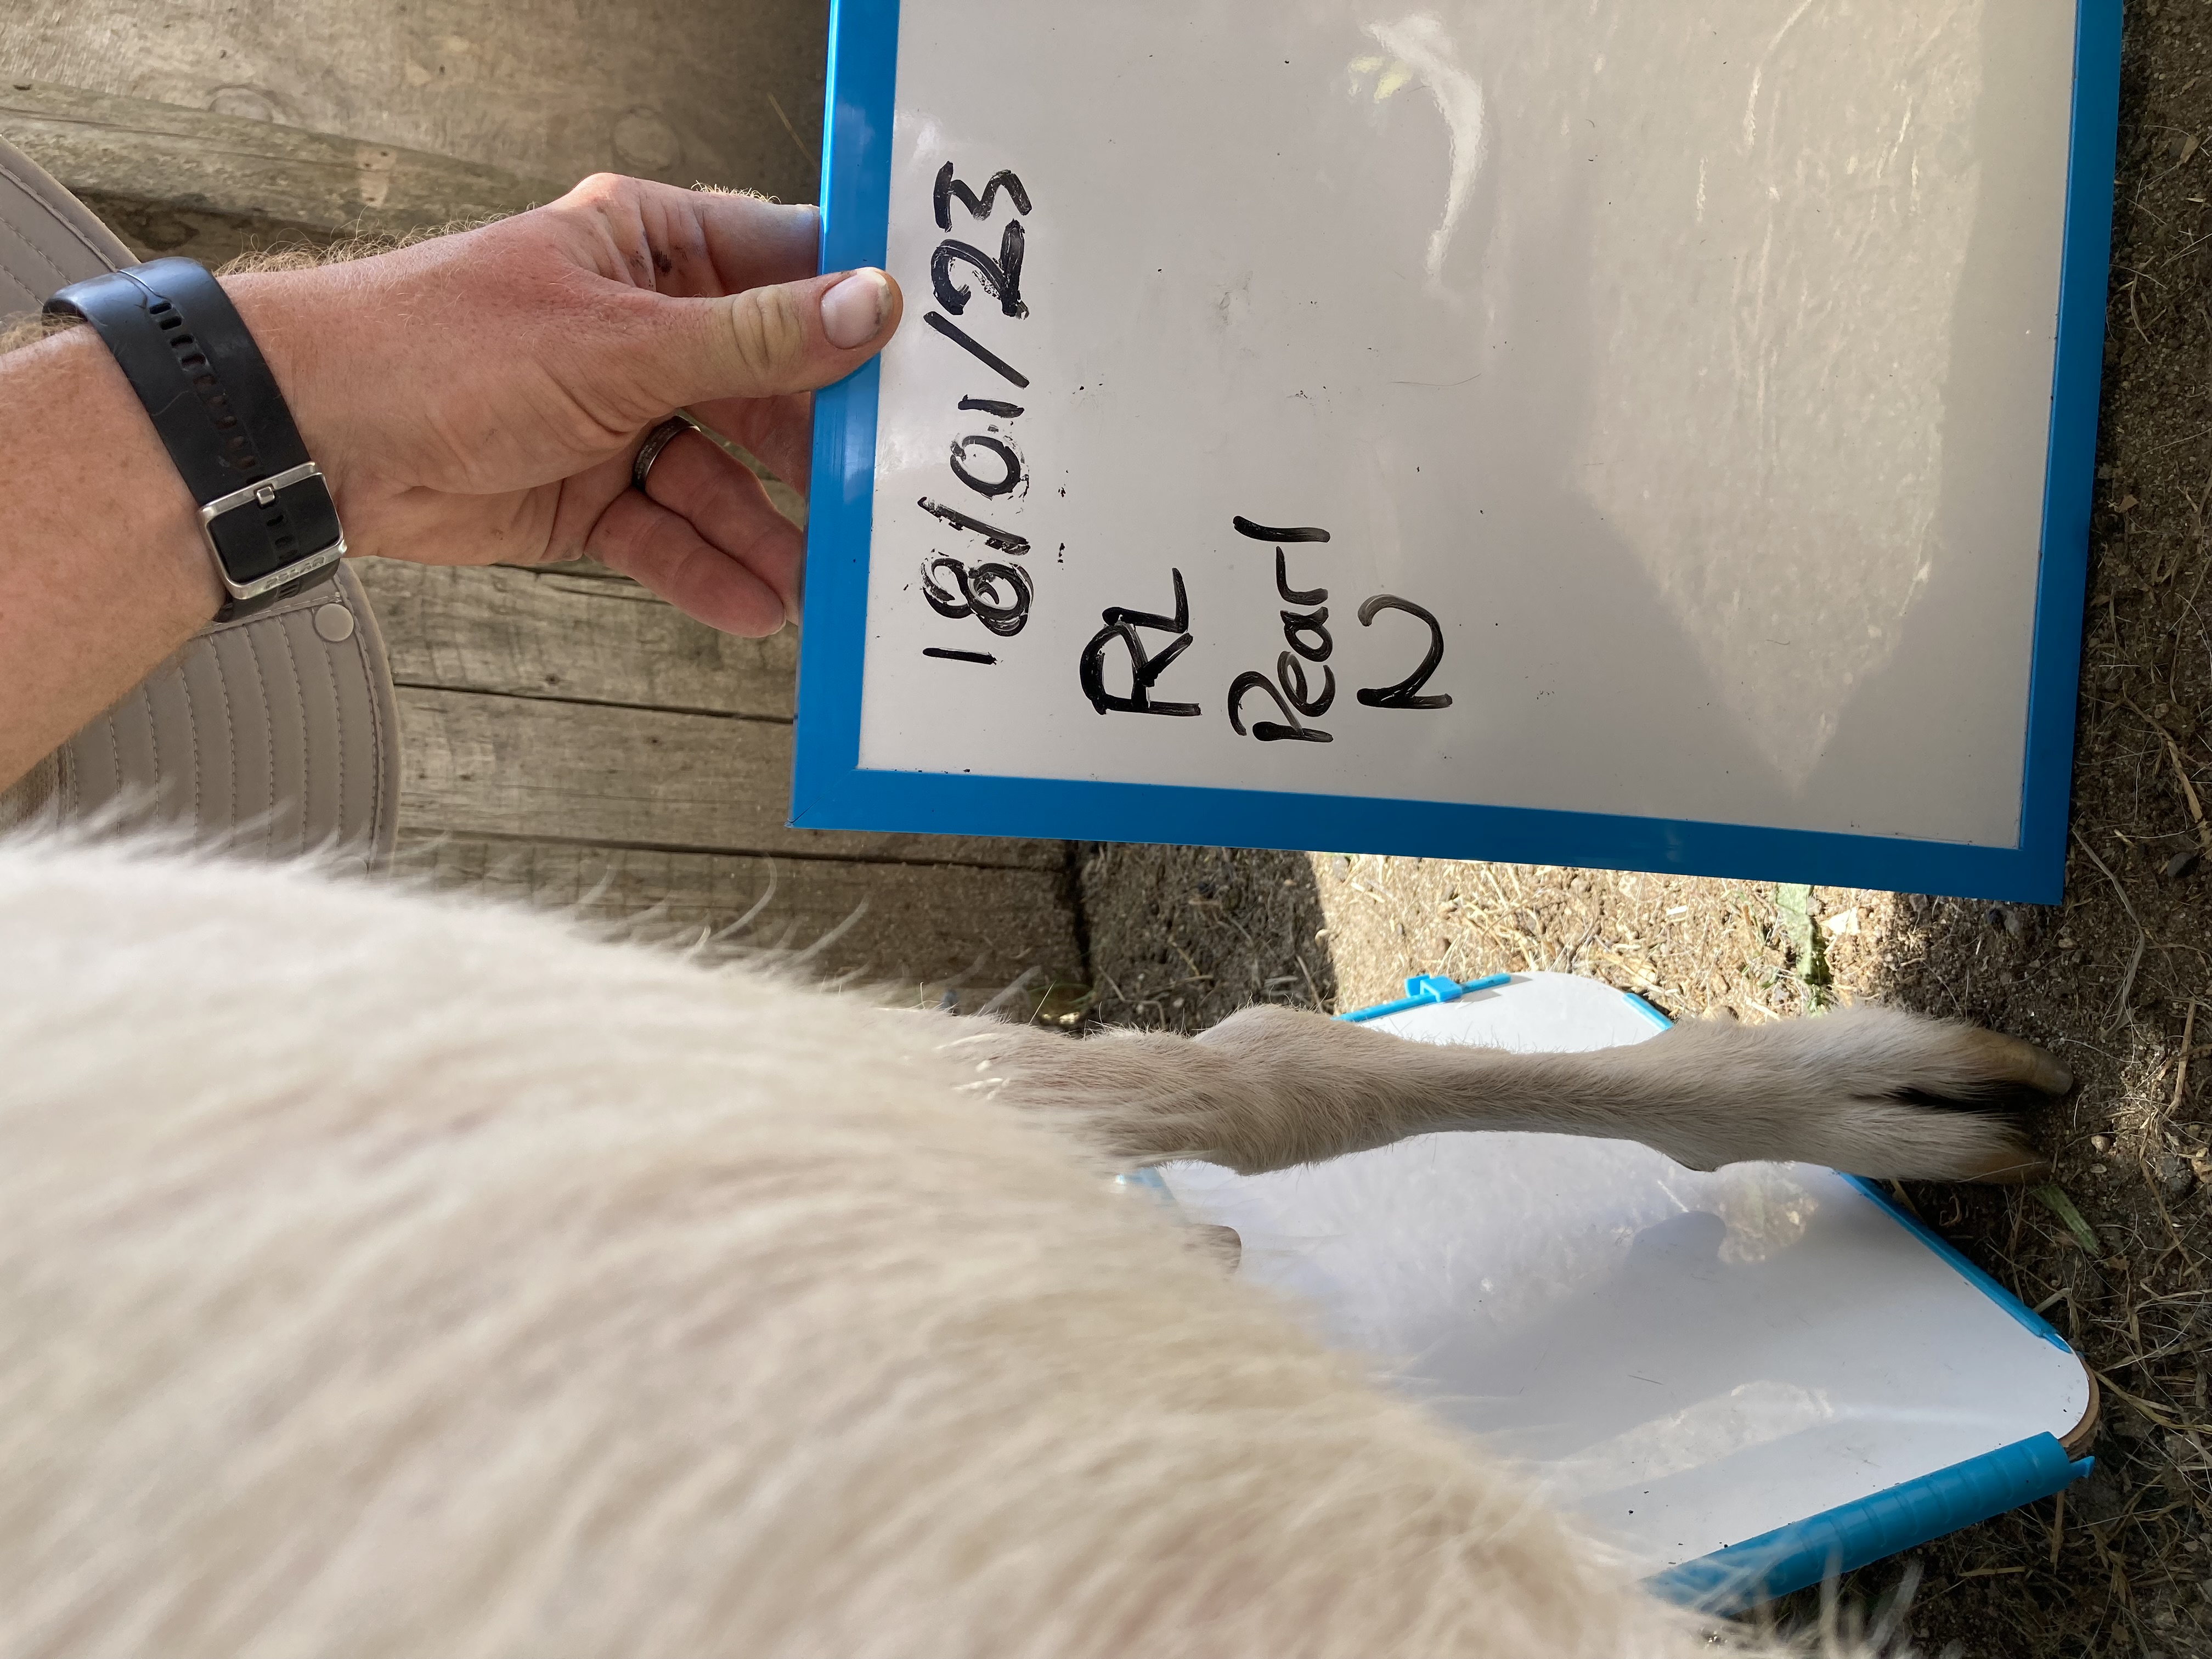 18/01/23
RL
Pearl
N